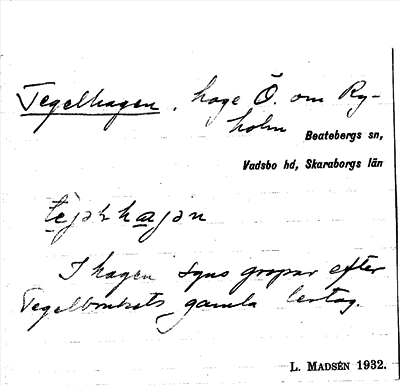 Tegelhagen, hage Ö. om Ry-
holm
Beatebergs sn,
Vadsbo hd, Skaraborgs län
I hagen synas gropar efter
Tegelbrukets gamla lertag.
L. MADSÉN 1932.